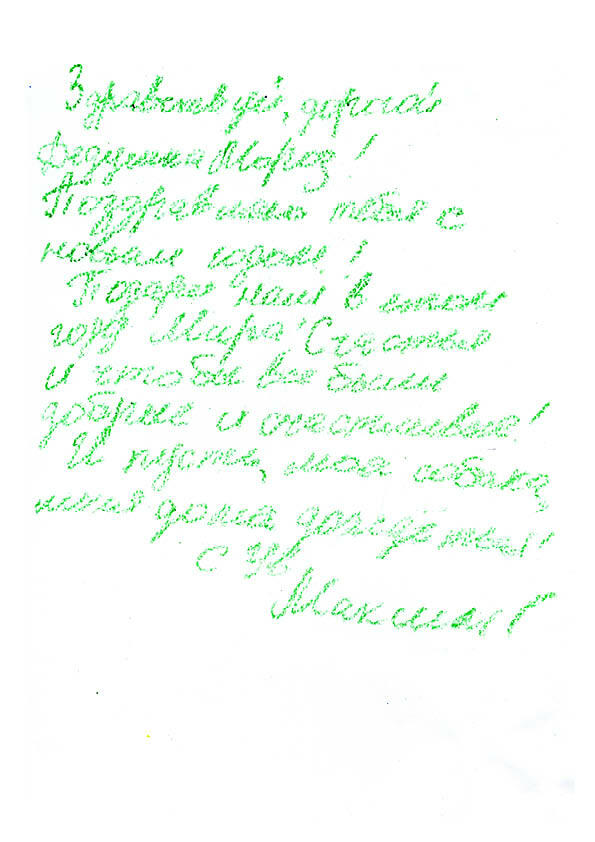 Здравствуй, дорогой
Дедушка Мороз!
Поздравляю тебя с
новым годом!
Подари нам в этом
году Мира! Счастья
и чтобы все были
добрые и счастливые!
И пусть, моя собака,
дома
с Ув
Максим Г